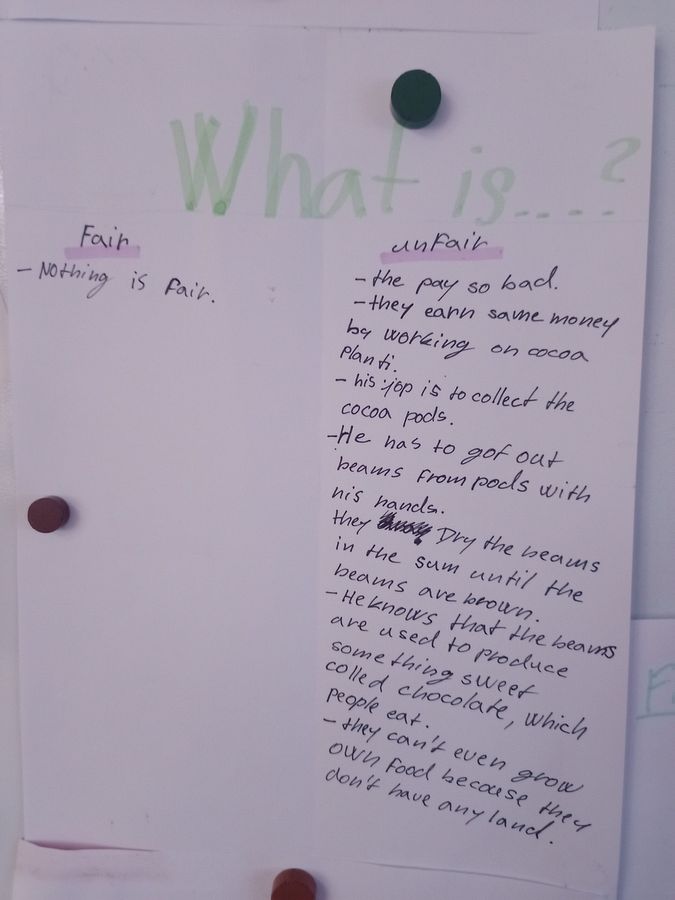 What is....?
Fair
- Nothing is Fair.
unFair
- the pay so bad.
- they earn same money
by working on cocoa
planti.
- his jop is to collect the
cocoa pods.
- He has to gof out
beams from pods with
his hands.
they Dry the beams
in the sum until the
beams are brown.
- He knows that the beams
are used to produce
something sweet
colled chocolate, which
people eat.
- they can't even grow
own food because they
don't have any land.
F